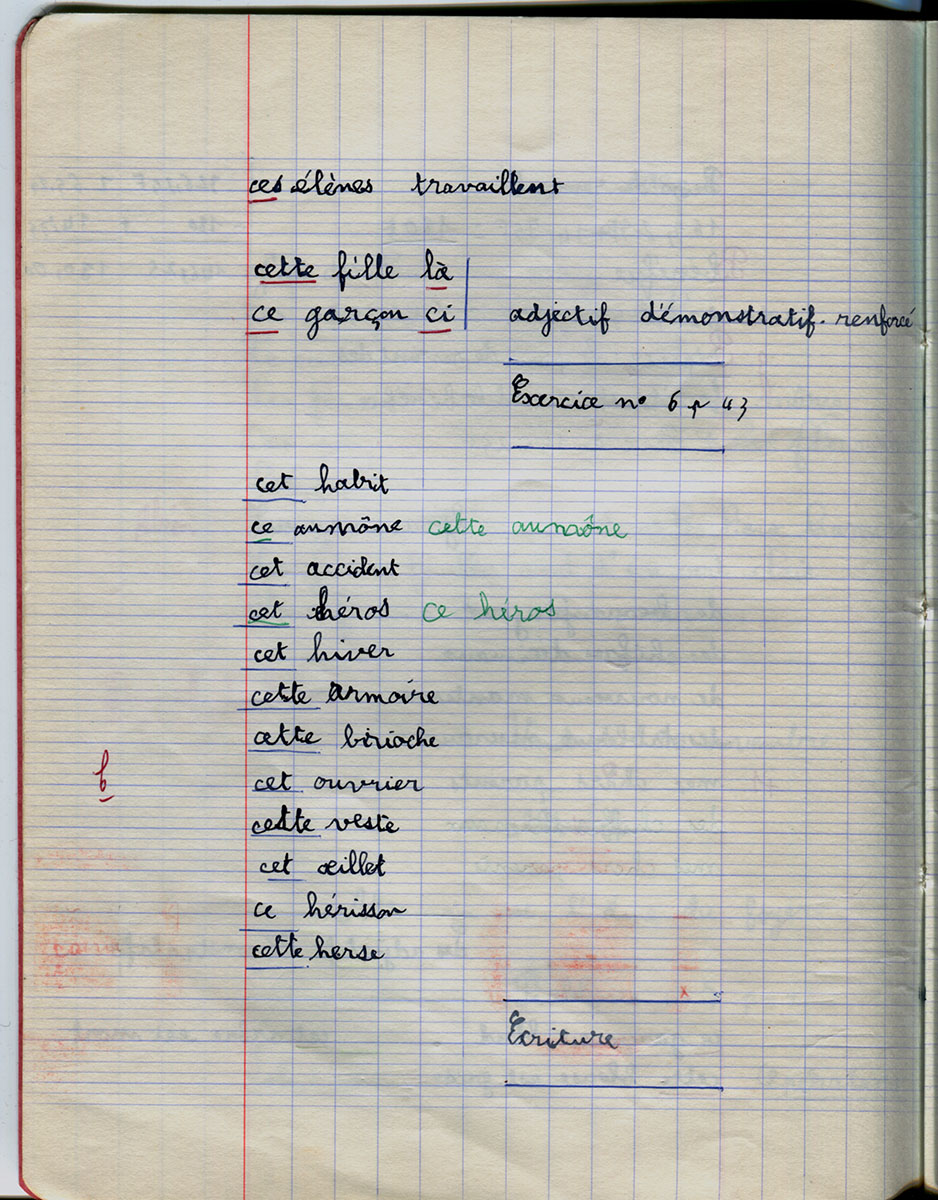 ces élènes travaillent
cette fille là
ce garçon ci adjectif d'émonstratif. renforcé
Exercice n° 6 p 43
cet habit
ce aumône cette aumône
cet accident
cet héros ce héros
cet hiver
cette armoire
cette bririoche
cet ouvrier
b
cette veste
cet œillet
ce hérisson
cette herse
Ecriture